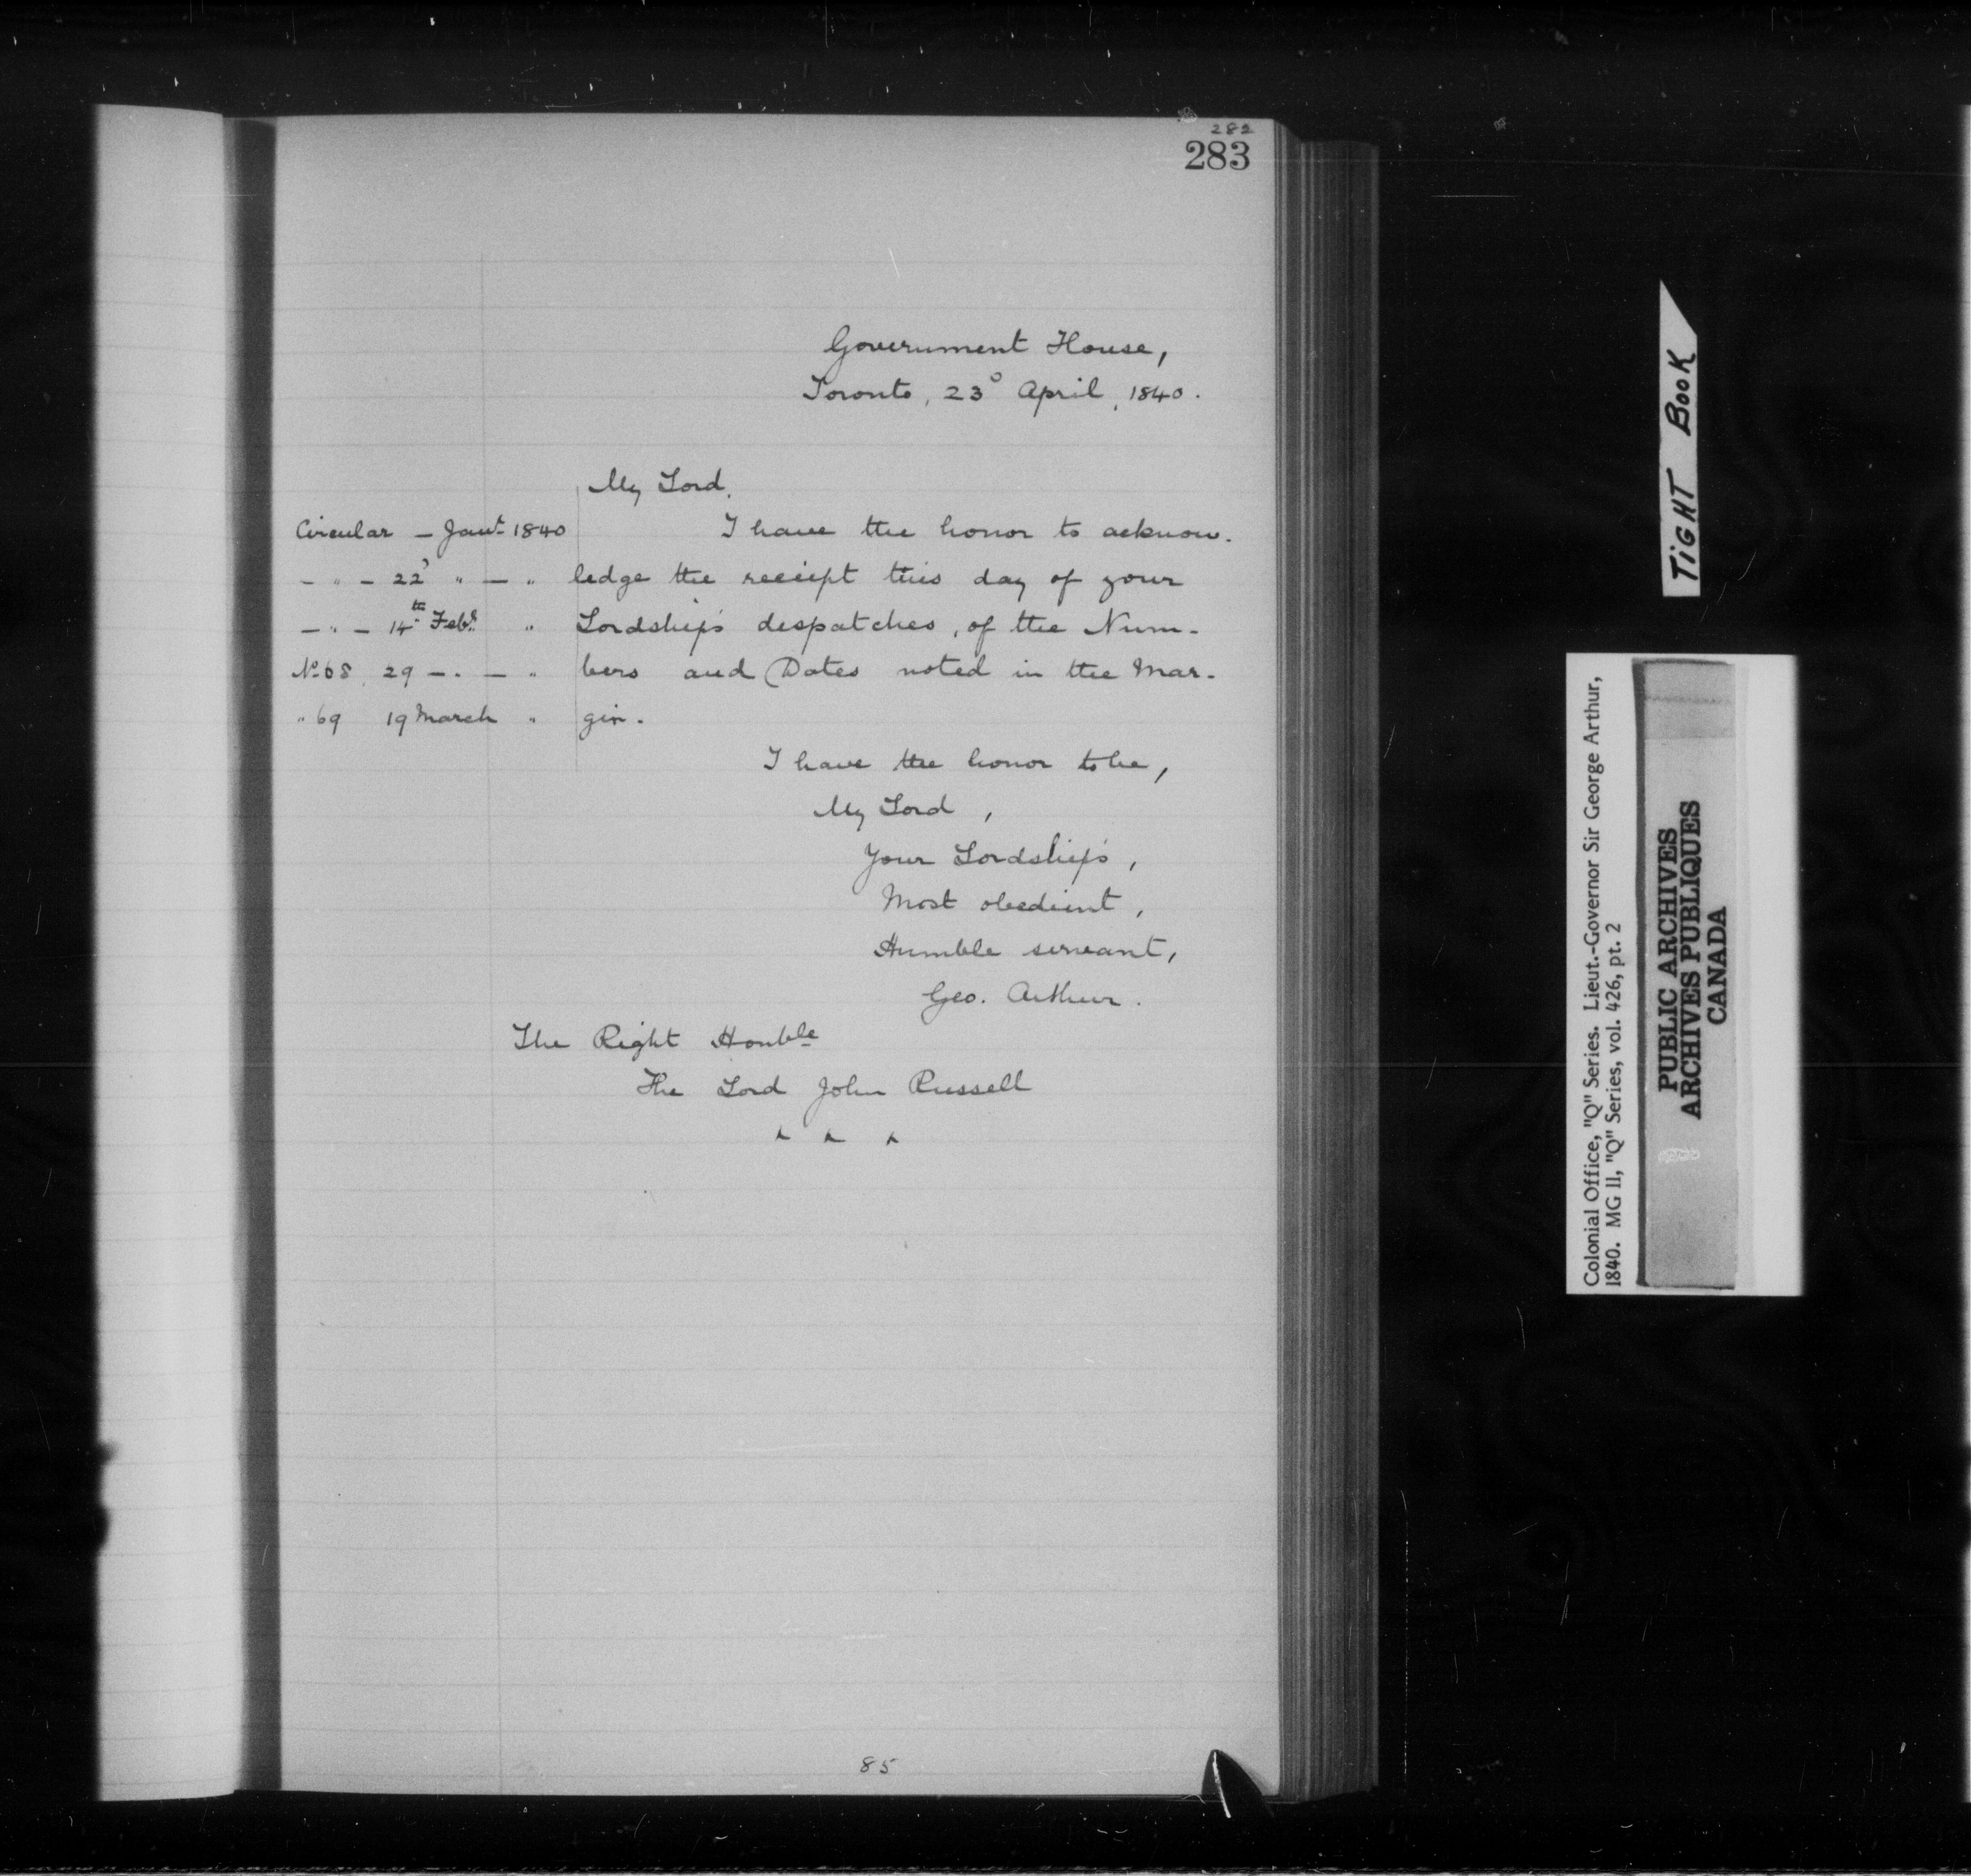 282
283
Government House,
Toronto, 23° April, 1840.
My Lord,
Circular – Jany 1840 I have the honor to acknow-
– " – 22° " – " ledge the receipt this day of your
– " – 14th Feby. " Lordship's despatches, of the Num-
No 68, 29 – . – " bers and Dates noted in the Mar-
" 69 19 March " gin.
I have the honor to be,
My Lord,
Your Lordship's,
Most obedient,
Humble servant,
Geo. Arthur.
The Right Honble
The Lord John Russell
85
TIGHT BOOK
Colonial Office, "Q" Series. Lieut.-Governor Sir George Arthur,
1840. MG 11, "Q" Series, vol. 426, pt. 2
PUBLIC ARCHIVES
ARCHIVES PUBLIQUES
CANADA